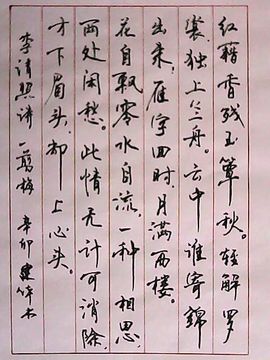 红藕香残玉簟秋。轻解罗
裳独上兰舟。云中谁寄锦
书来，雁字回时，月满西楼。
花自飘零水自流，一种相思，
两处闲愁。此情无计可消除，
才下眉头，却上心头。
李清照诗 一剪梅 辛卯 建 书